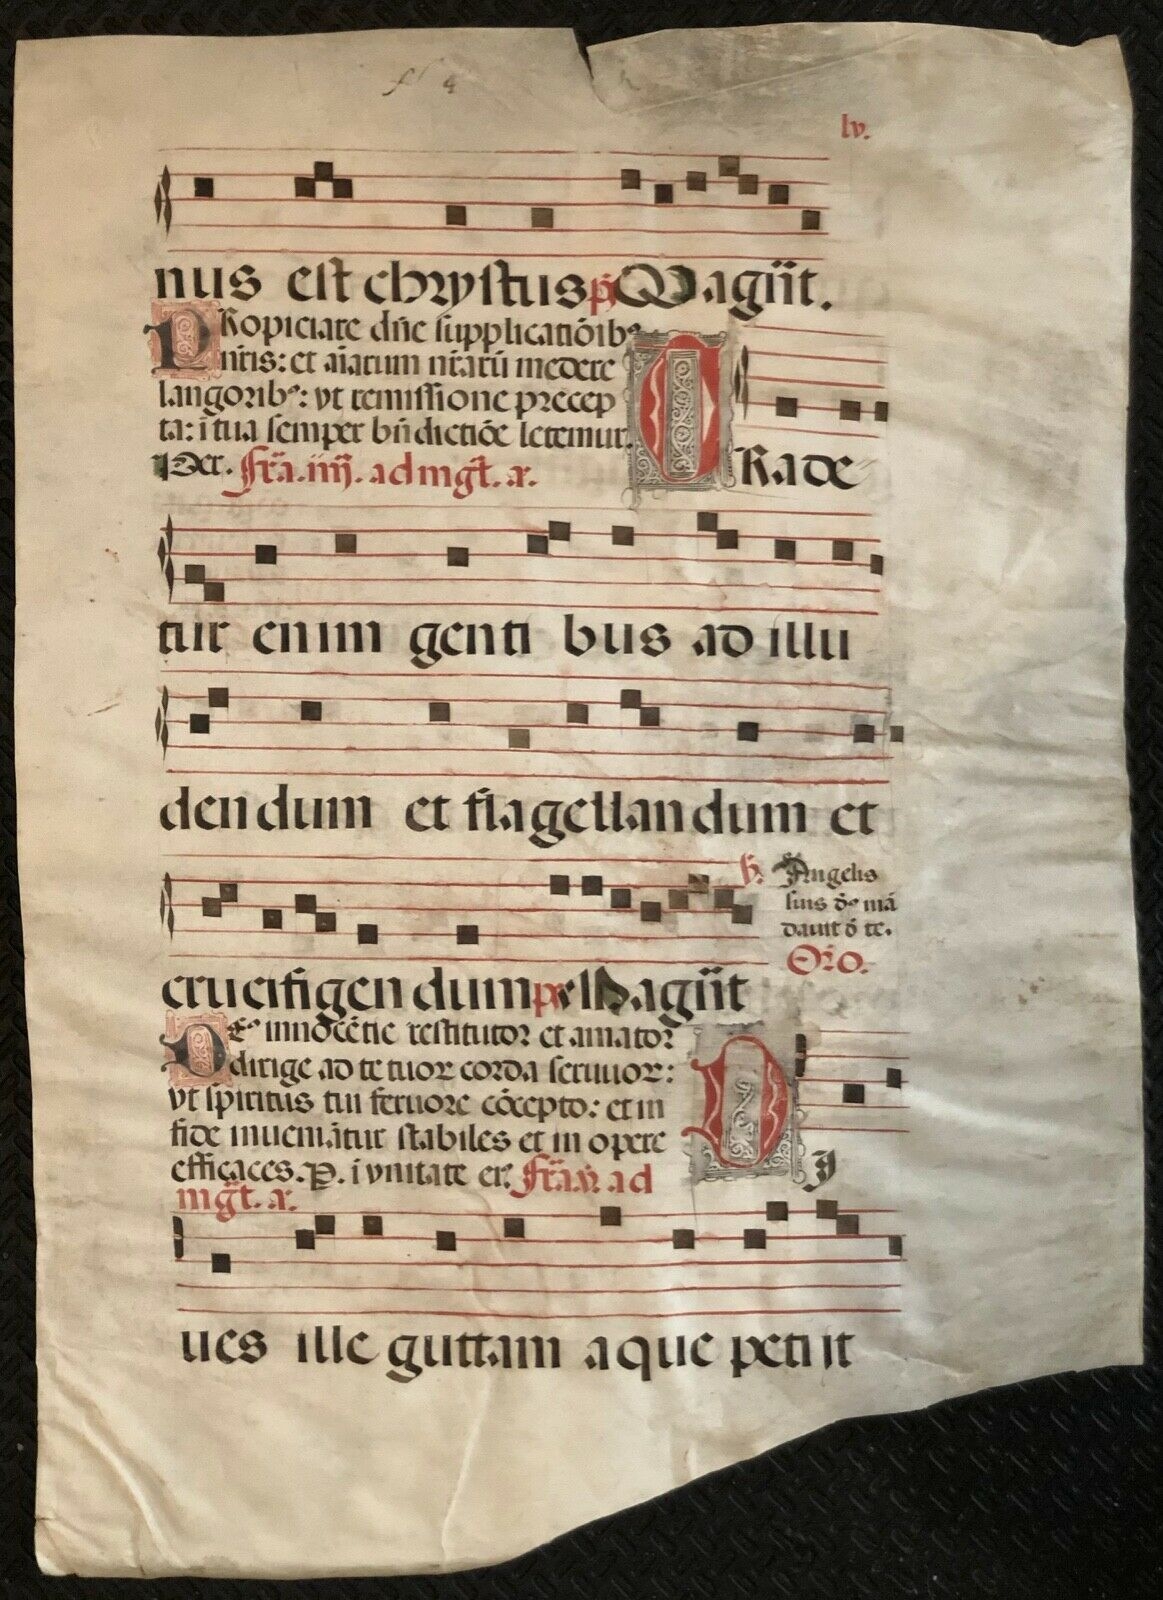 lv.
nus est chrystus p̄s Magn̄t.
PRopiciare dn̄e supplicatiōibꝰ
nr̄is: et aīarum nr̄arū medere
langoribꝰ: vt remissione precep
ta: ī tua semper bn̄dictiōe letemur.
Per. fr̄a. iiij. ad mgt̄. a.
TRade
tur enim genti bus ad illu
dendum et flagellandum et
crucifigen dum ps Magn̄t
v̄. Angelis
suis dꝰ mā
dauit d̄ te.
Oro.
DEꝰ innocētie restitutor et amator
dirige ad te tuoꝝ corda seruuoꝝ:
vt spiritus tui feruore cōcepto: et in
fide inueniātur stabiles et in opere
efficaces. P. i vnitate er. fr̄a. v. ad
mgt̄. a.
DI
ues ille guttam aque petiit